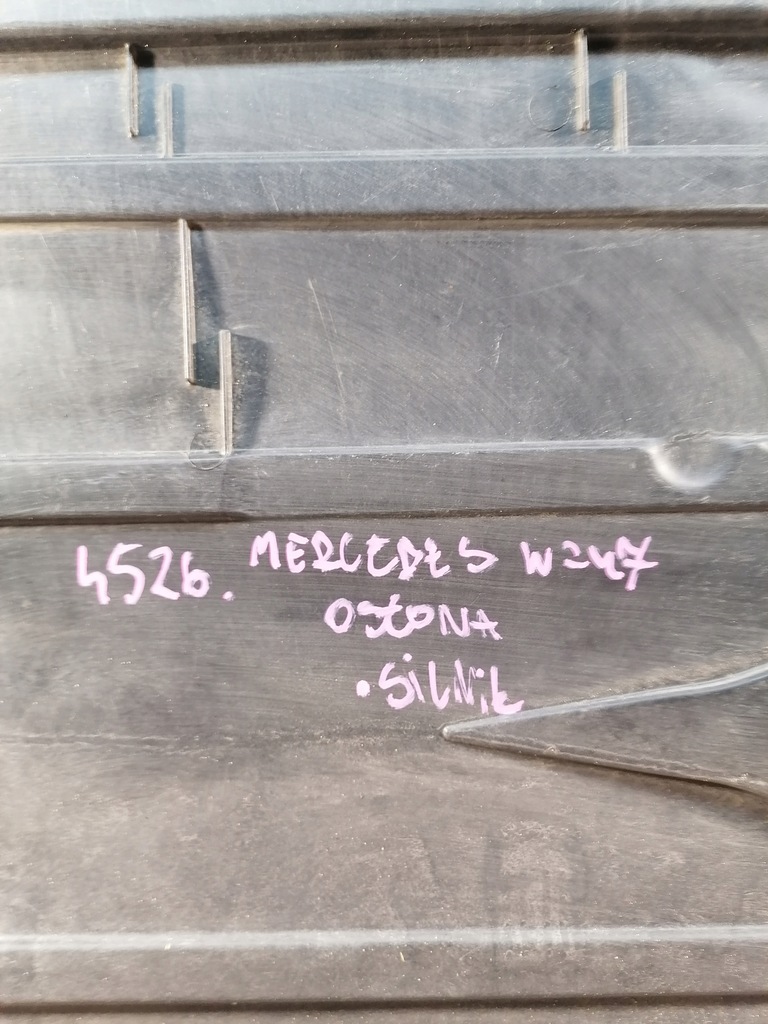 4526. MERCEDES W247
OSŁONA
.SiLNik